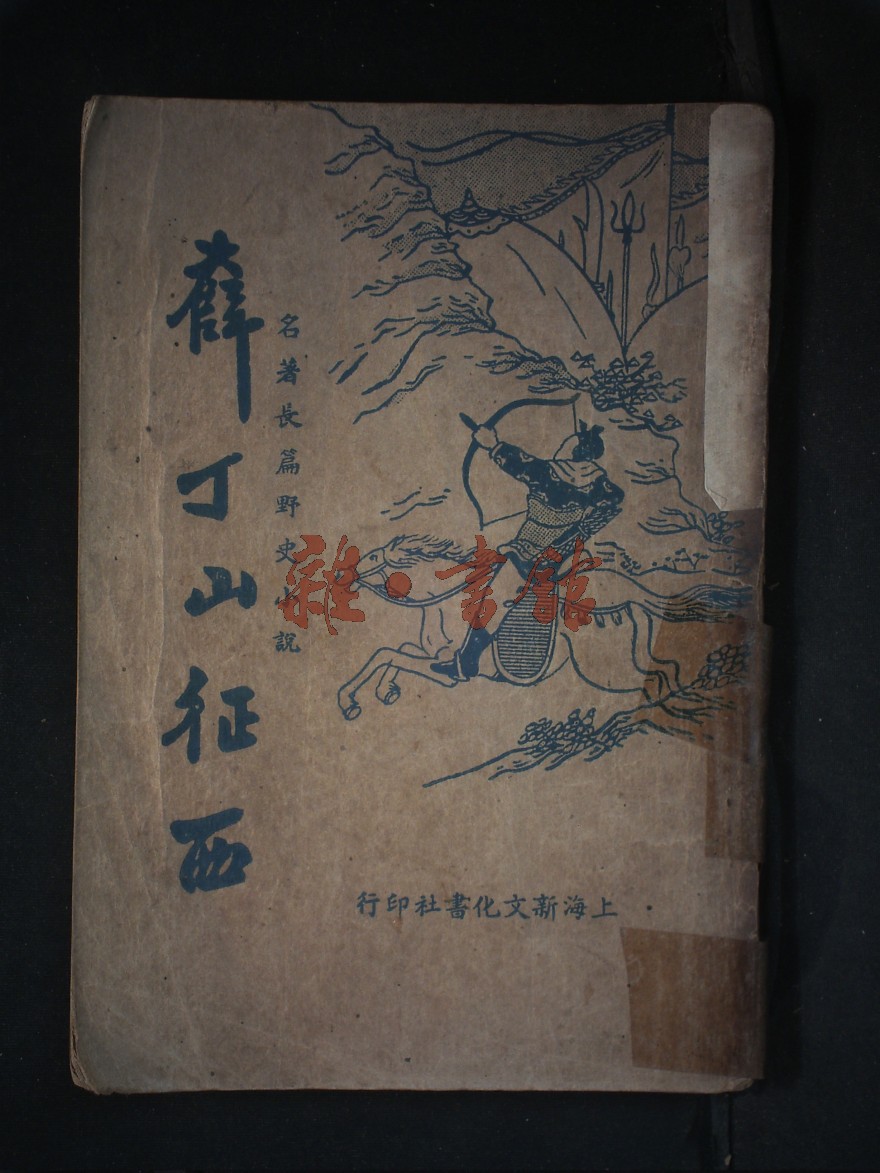 薛丁山征西
名著長篇野史小說
雜·書館
上海新文化書社印行